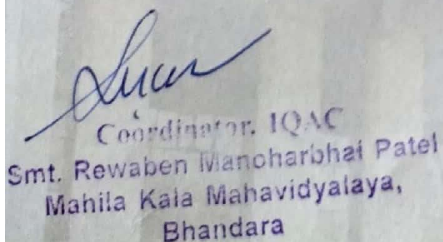 Coordinator, IQAC
Smt. Rewaben Manoharbhai Patel
Mahila Kala Mahavidyalaya,
Bhandara